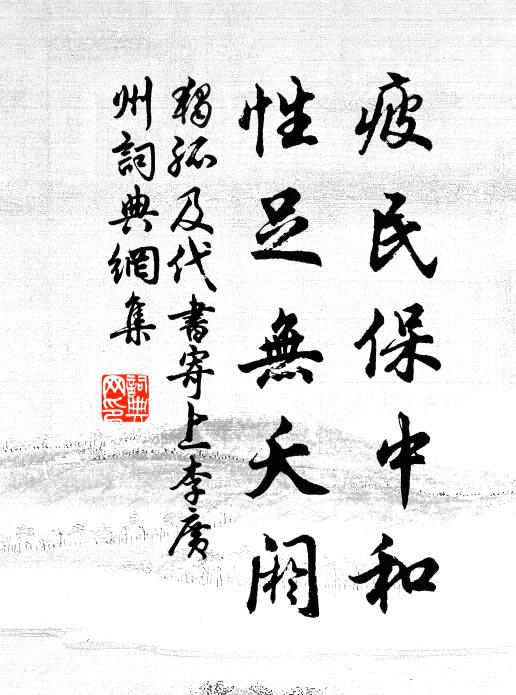 疲民保中和
性足無夭閼
獨孤及代書寄上李廣
州詞典網集
詞典
网印